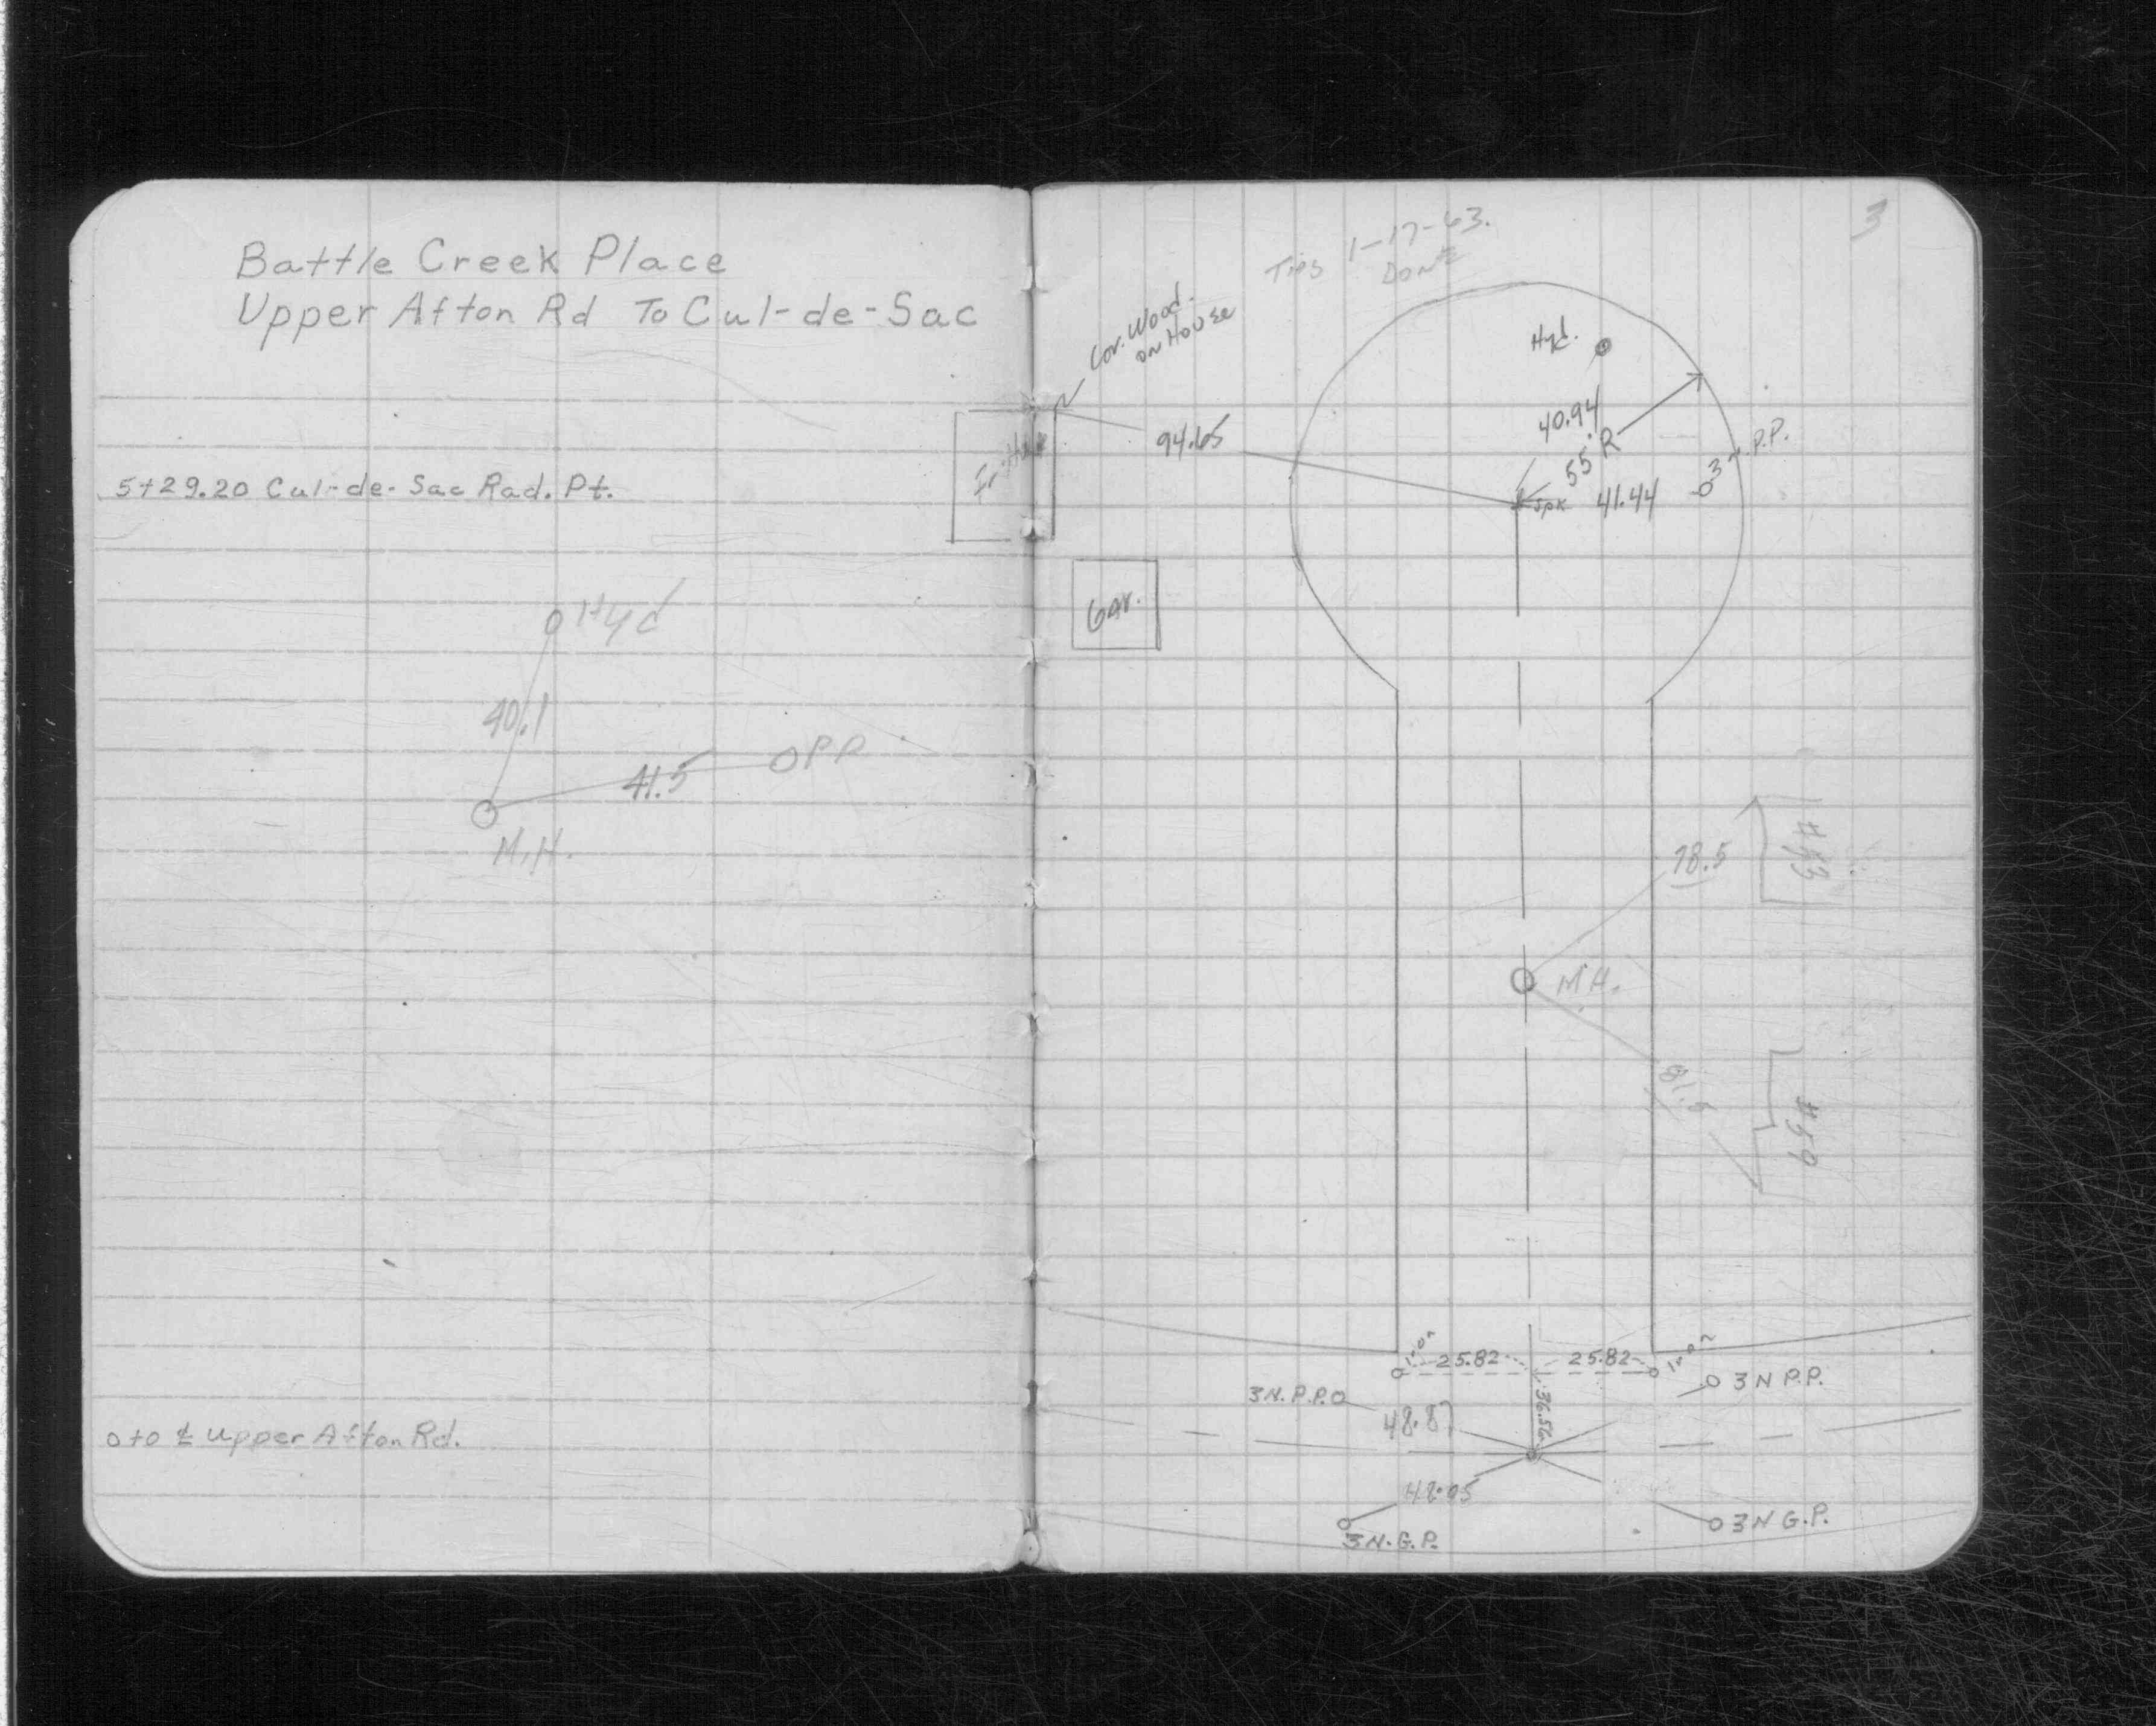 Battle Creek Place
Upper Afton Rd To Cul-de-Sac
5+29.20 Cul-de-Sac Rad. Pt.
Hyd
40.1
41.5
PP
M.H.
0+0 ⅊ Upper Afton Rd.
3
Ties 1-17-63.
Done
Cor. Wood.
on House
Fr. House
94.65
Hyd.
40.94
55' R
Spk
41.44
3N P.P.
Gar.
78.5
#53
M.H.
81.5
#59
Iron
25.82
25.82
Iron
3N. P.P.
3N P.P.
48.87
36.56
48.05
3N. G.P.
3N G.P.